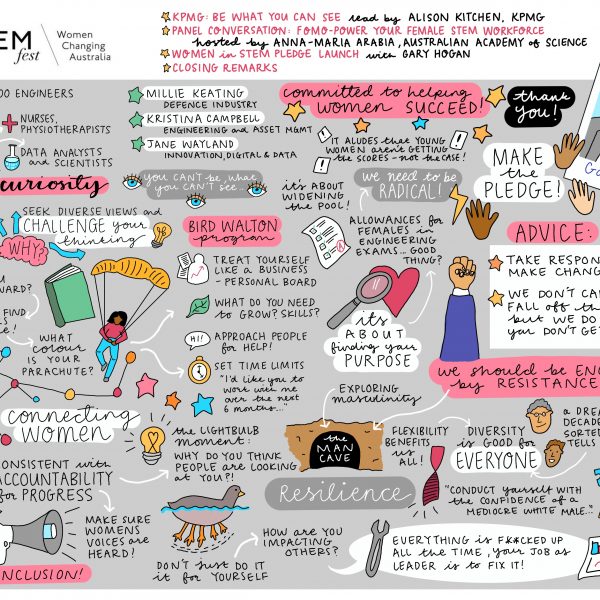 EM
fest
Women
Changing
Australia
KPMG: BE WHAT YOU CAN SEE read by ALISON KITCHEN, KPMG
PANEL CONVERSATION: FOMO-POWER YOUR FEMALE STEM WORKFORCE
hosted by ANNA-MARIA ARABIA, AUSTRALIAN ACADEMY of SCIENCE
WOMEN in STEM PLEDGE LAUNCH with GARY HOGAN
CLOSING REMARKS
00 ENGINEERS
NURSES,
PHYSIOTHERAPISTS
DATA ANALYSTS
and SCIENTISTS
MILLIE KEATING
DEFENCE INDUSTRY
KRISTINA CAMPBELL
ENGINEERING and ASSET MGMT
JANE WAYLAND
INNOVATION, DIGITAL & DATA
committed to helping
WOMEN SUCCEED!
thank
you!
IT ALUDES that YOUNG
WOMEN aren't GETTING
the SCORES - not the CASE!
MAKE
the
PLEDGE!
curiosity
you CAN'T be, what
you CAN'T see...
it's ABOUT
WIDENING
the POOL!
we need to be
RADICAL!
SEEK DIVERSE VIEWS and
CHALLENGE your
thinking
WHY?
BIRD WALTON
program
TREAT YOURSELF
LIKE A BUSINESS
- PERSONAL BOARD
WHAT DO YOU NEED
to GROW? SKILLS?
HI!
APPROACH PEOPLE
for HELP!
SET TIME LIMITS
"I'd like you to
work with me
over the next
6 months..."
ALLOWANCES for
FEMALES in
ENGINEERING
EXAMS... GOOD
THING?
ADVICE:
TAKE RESPON
MAKE CHANG
WE DON'T CA
FALL off th
but WE DO
you DON'T GE
WARD?
FIND
WHAT
COLOUR
is YOUR
PARACHUTE?
it's
ABOUT
finding your
PURPOSE
we should be EN
by RESISTANCE
EXPLORING
masculinity
connecting
WOMEN
the LIGHTBULB
moment:
WHY DO YOU THINK
PEOPLE are LOOKING
at YOU?!
the
MAN
CAVE
FLEXIBILITY
BENEFITS
us ALL!
DIVERSITY
is GOOD for
EVERYONE
a DREA
DECADE
SORTED
TELLS
CONSISTENT with
ACCOUNTABILITY
for PROGRESS
Resilience
"CONDUCT yourself with
the CONFIDENCE of a
MEDIOCRE WHITE MALE..."
MAKE SURE
WOMENS
VOICES are
HEARD!
HOW are YOU
IMPACTING
OTHERS?
DON'T just DO
it for YOURSELF
EVERYTHING is F✱✱CKED UP
ALL the TIME, your JOB as
LEADER is to FIX it!
CONCLUSION!